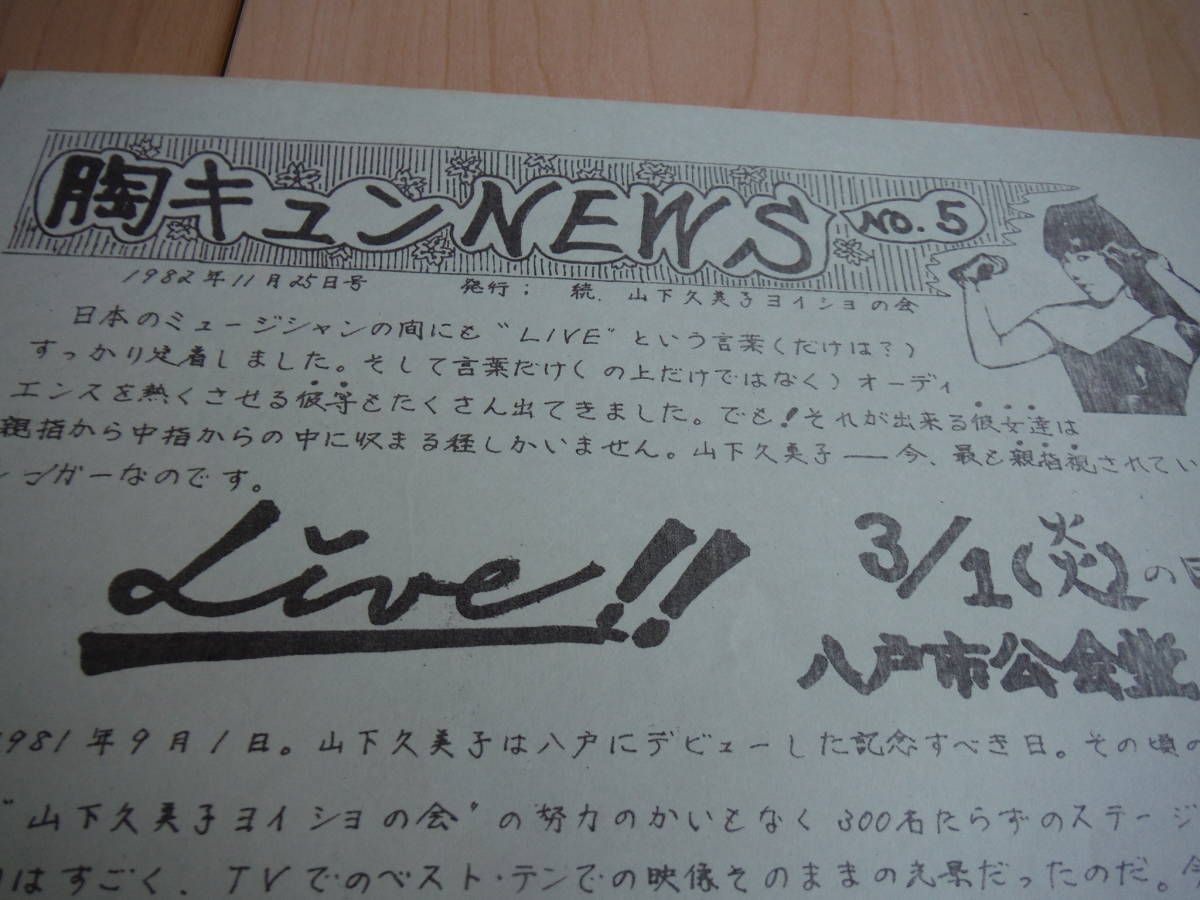 胸キュンNEWS NO.5
1982年11月25日号 発行; 続.山下久美子ヨイショの会
日本のミュージシャンの間にも"LIVE"という言葉(だけは?)
すっかり定着しました。そして言葉だけ(の上だけではなく)オーディ
エンスを熱くさせる彼等もたくさん出てきました。でも!それが出来る彼女達は
親指から中指からの中に収まる程しかいません。山下久美子——今、最も親指視されてい
シンガーなのです。
Live!!
3/1(火)の
八戸市公会堂
1981年9月1日。山下久美子は八戸にデビューした記念すべき日。その頃の
"山下久美子ヨイショの会"の努力のかいもなく300名たらずのステージ
はすごく、TVでのベスト・テンでの映像そのままの光景だったのだ。